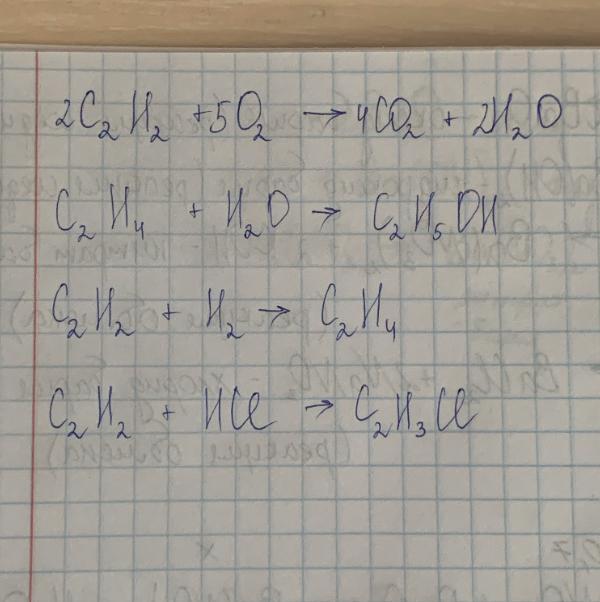 2C₂H₂ + 5O₂ → 4CO₂ + 2H₂O
C₂H₄ + H₂O → C₂H₅OH
C₂H₂ + H₂ → C₂H₄
C₂H₂ + HCl → C₂H₃Cl